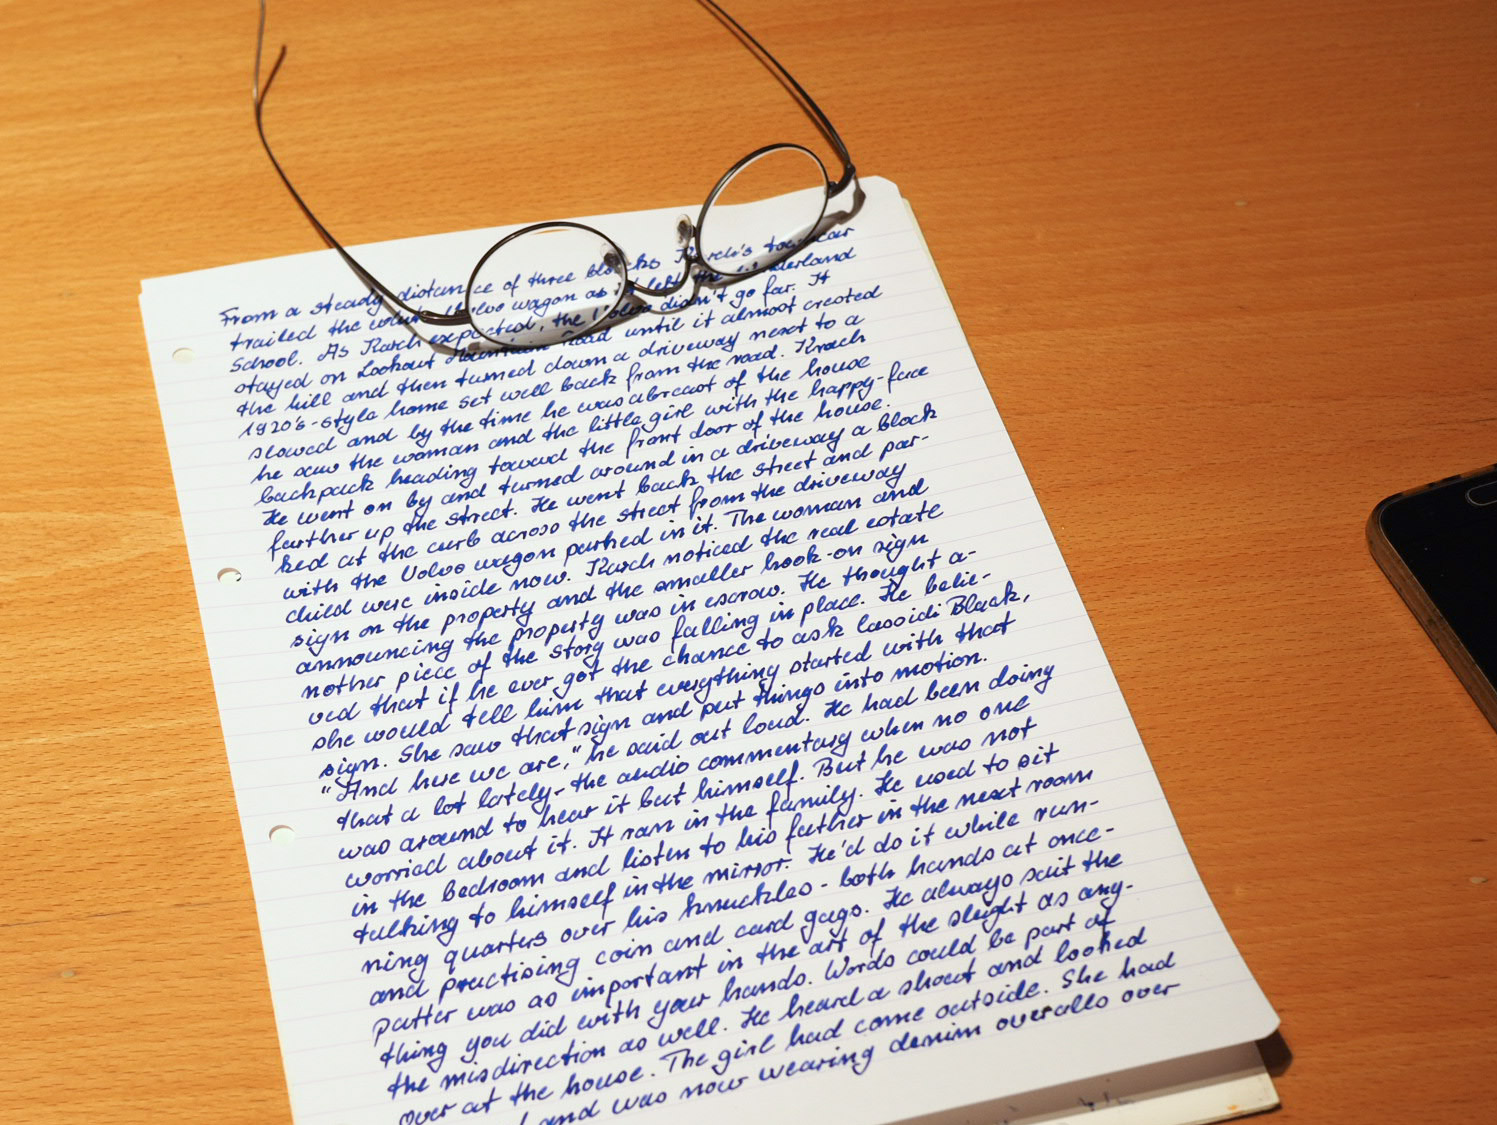 From a steady distance of three blocks Karch's towncar
trailed the white Volvo wagon as it left the Wonderland
School. As Karch expected, the Volvo didn't go far. It
stayed on Lookout Mountain Road until it almost created
the hill and then turned down a driveway next to a
1920's-style home set well back from the road. Krach
slowed and by the time he was abreast of the house
he saw the woman and the little girl with the happy-face
backpack heading toward the front door of the house.
He went on by and turned around in a driveway a block
farther up the street. He went back the street and par-
ked at the curb across the street from the driveway
with the Volvo wagon parked in it. The woman and
child were inside now. Karch noticed the real estate
sign on the property and the smaller hook-on sign
announcing the property was in escrow. He thought a-
nother piece of the story was falling in place. He belie-
ved that if he ever got the chance to ask Cassidi Black,
she would tell him that everything started with that
sign. She saw that sign and put things into motion.
"And here we are," he said out loud. He had been doing
that a lot lately - the audio commentary when no one
was around to hear it but himself. But he was not
worried about it. It ran in the family. He used to sit
in the bedroom and listen to his father in the next room
talking to himself in the mirror. He'd do it while run-
ning quarters over his knuckles - both hands at once -
and practising coin and card gags. He always said the
patter was as important in the art of the sleight as any-
thing you did with your hands. Words could be part of
the misdirection as well. He heard a shout and looked
over at the house. The girl had come outside. She had
and was now wearing denim overalls over